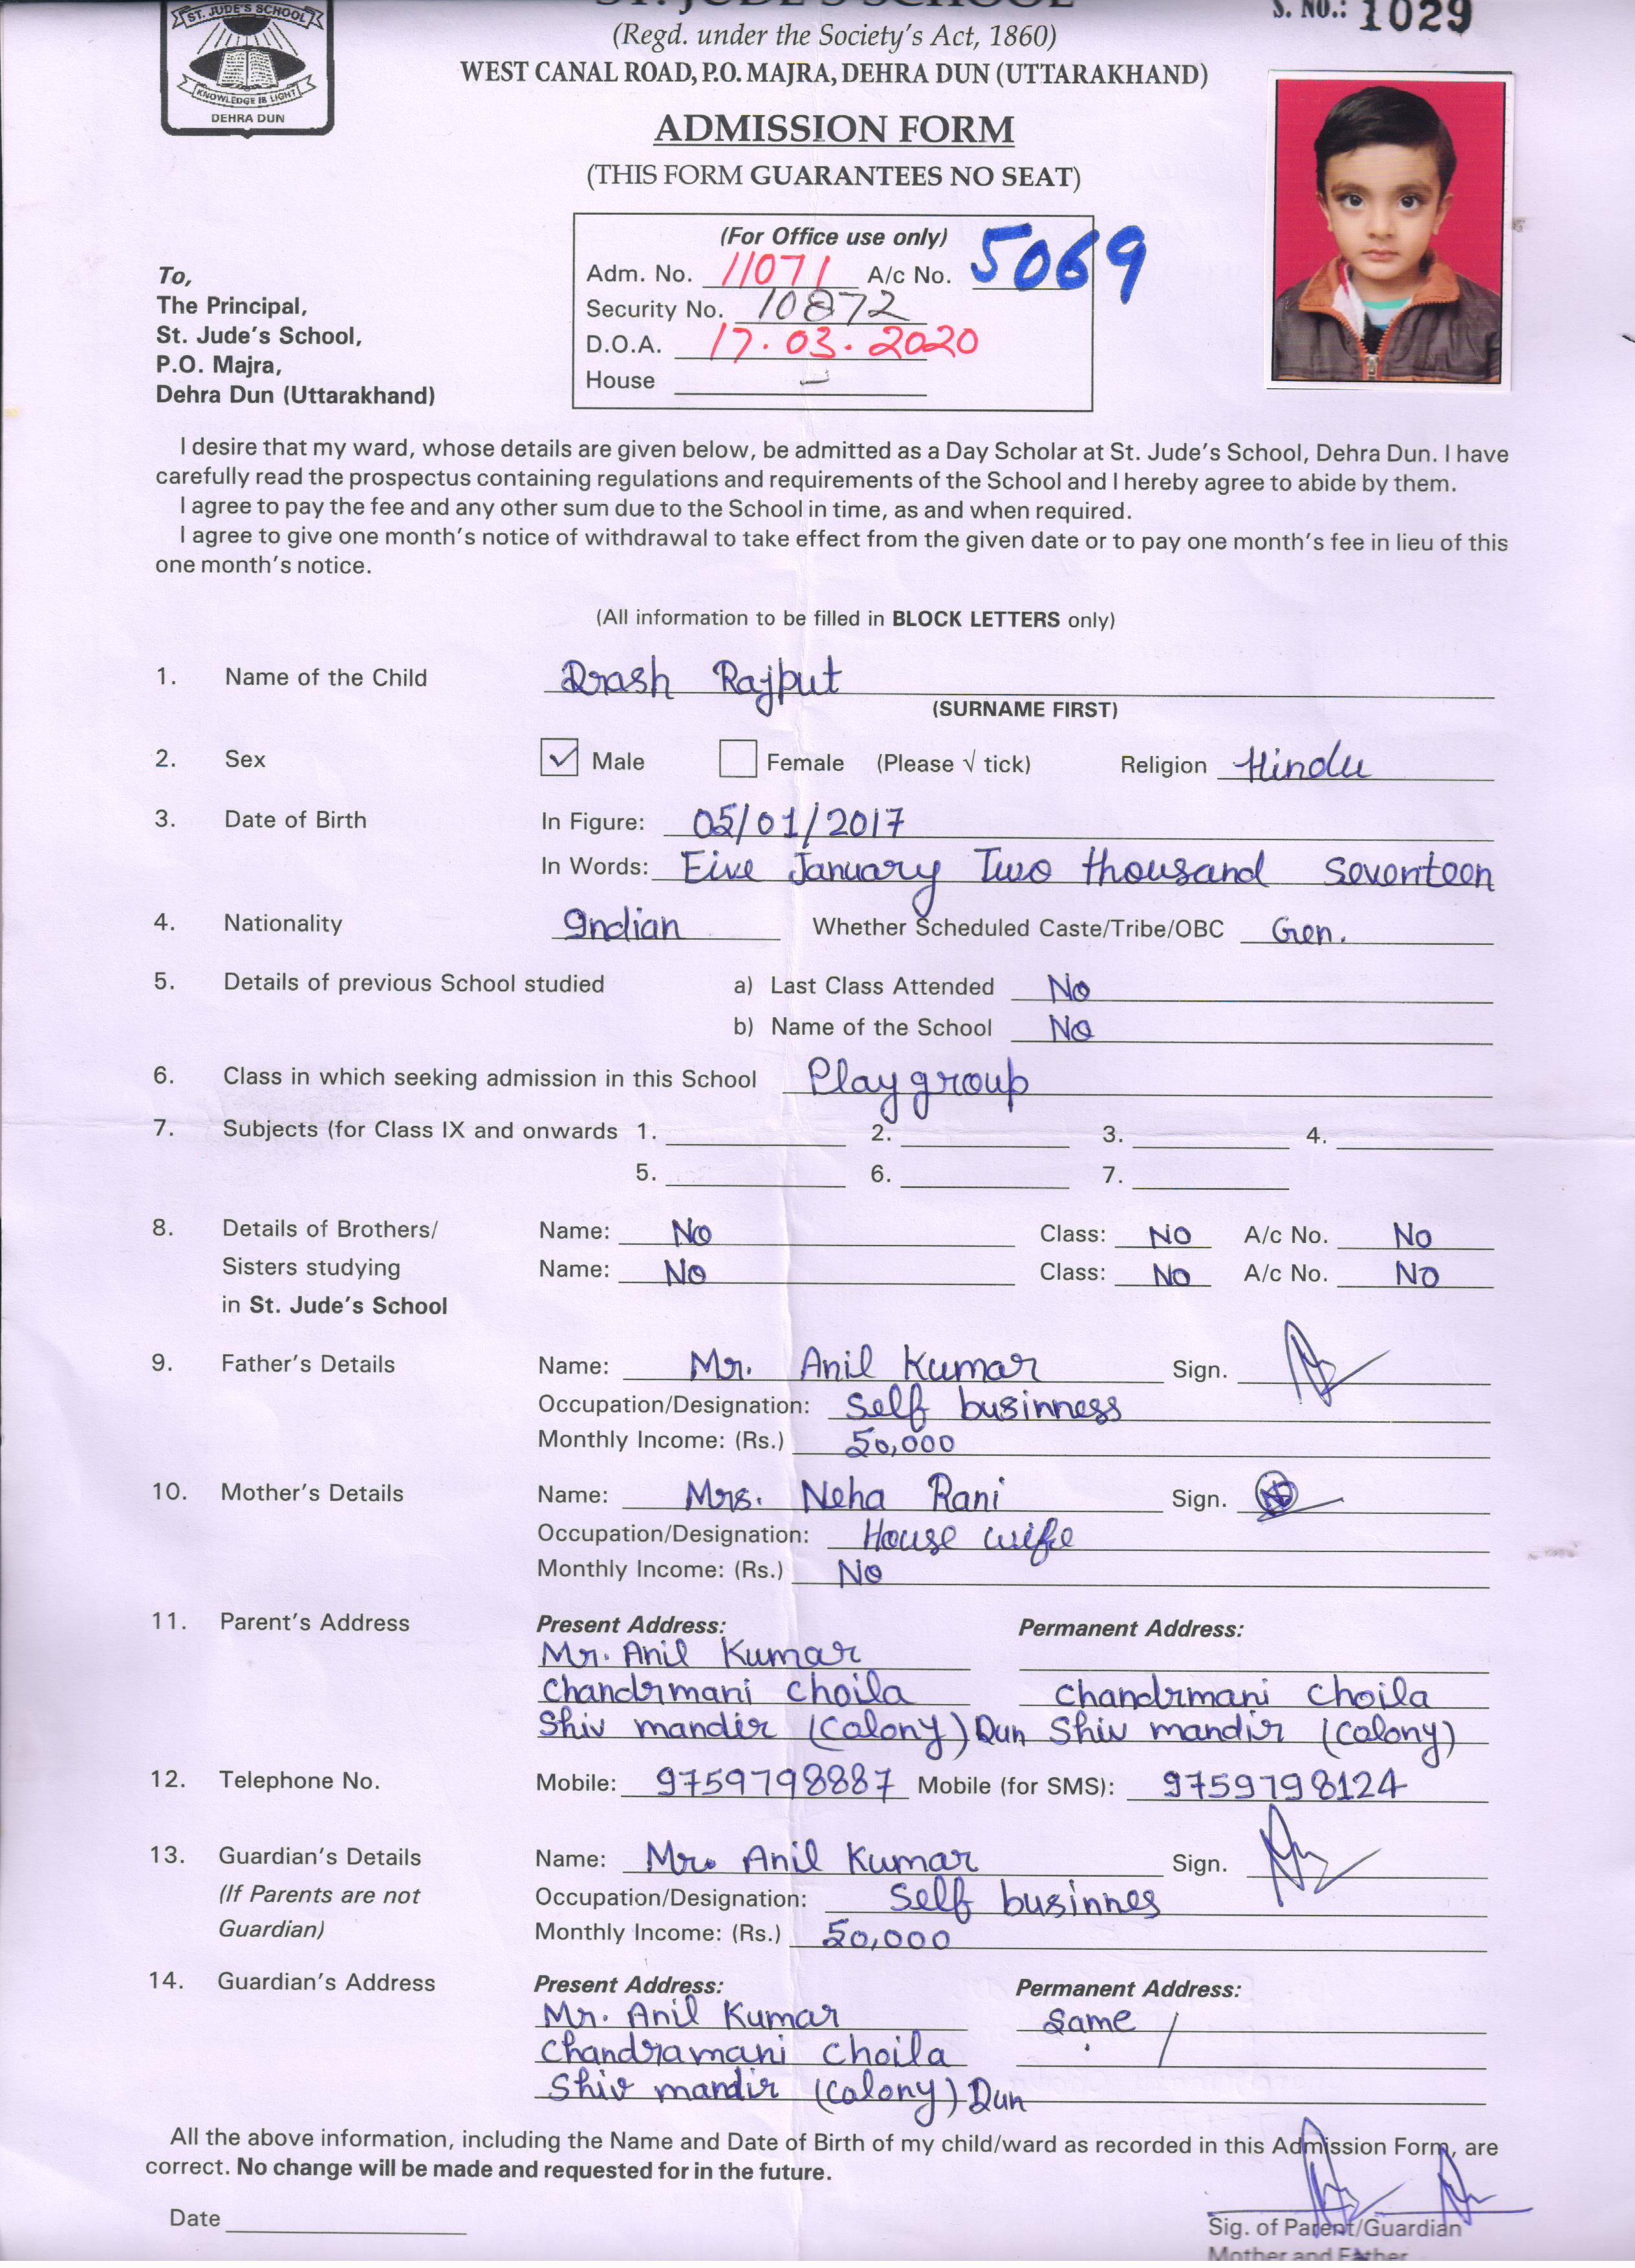 ST. JUDE'S SCHOOL
KNOWLEDGE IS LIGHT
DEHRA DUN
ST. JUDE'S SCHOOL
S. NO.: 1029
(Regd. under the Society's Act, 1860)
WEST CANAL ROAD, P.O. MAJRA, DEHRA DUN (UTTARAKHAND)
ADMISSION FORM
(THIS FORM GUARANTEES NO SEAT)
(For Office use only)
Adm. No. 11071 A/c No. 5069
Security No. 10872
D.O.A. 17.03.2020
House
To,
The Principal,
St. Jude's School,
P.O. Majra,
Dehra Dun (Uttarakhand)
I desire that my ward, whose details are given below, be admitted as a Day Scholar at St. Jude's School, Dehra Dun. I have
carefully read the prospectus containing regulations and requirements of the School and I hereby agree to abide by them.
I agree to pay the fee and any other sum due to the School in time, as and when required.
I agree to give one month's notice of withdrawal to take effect from the given date or to pay one month's fee in lieu of this
one month's notice.
(All information to be filled in BLOCK LETTERS only)
1. Name of the Child Rajput
(SURNAME FIRST)
2. Sex ✓ Male Female (Please √ tick) Religion Hindu
3. Date of Birth In Figure: 05/01/2017
In Words: Five January Two thousand Seventeen
4. Nationality Indian Whether Scheduled Caste/Tribe/OBC Gen.
5. Details of previous School studied a) Last Class Attended No
b) Name of the School No
6. Class in which seeking admission in this School Play group
7. Subjects (for Class IX and onwards 1. 2. 3. 4.
5. 6. 7.
8. Details of Brothers/ Name: No Class: No A/c No. No
Sisters studying Name: No Class: No A/c No. No
in St. Jude's School
9. Father's Details Name: Mr. Anil Kumar Sign.
Occupation/Designation: Self businness
Monthly Income: (Rs.) 50,000
10. Mother's Details Name: Mrs. Neha Rani Sign.
Occupation/Designation: House wife
Monthly Income: (Rs.) No
11. Parent's Address Present Address: Permanent Address:
Mr. Anil Kumar
Chandrmani Choila Chandrmani Choila
Shiv mandir (Colony) Dun Shiv mandir (Colony)
12. Telephone No. Mobile: 9759798887 Mobile (for SMS): 9759798124
13. Guardian's Details Name: Mr. Anil Kumar Sign.
(If Parents are not Occupation/Designation: Self businnes
Guardian) Monthly Income: (Rs.) 50,000
14. Guardian's Address Present Address: Permanent Address:
Mr. Anil Kumar Same
Chandramani Choila
Shiv mandir (Colony) Dun
All the above information, including the Name and Date of Birth of my child/ward as recorded in this Admission Form, are
correct. No change will be made and requested for in the future.
Date
Sig. of Parent/Guardian
Mother and Father